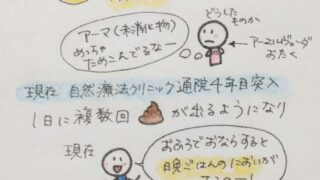 どうした
ものか
アーマ(未消化物)
めっちゃ
ためこんでるなー
アーユルヴェーダ
おたく
現在 自然療法クリニック通院4年目突入
1日に複数回 が出るようになり
現在
おふろでおならすると
晩ごはんのにおいが